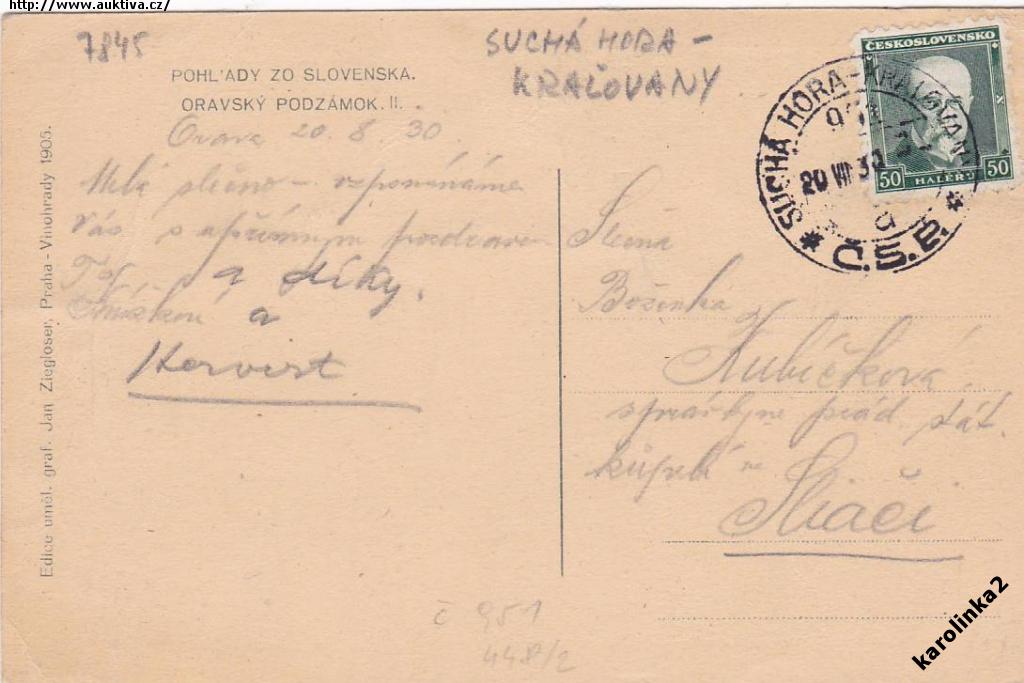 http://www.auktiva.cz/
7845
SUCHÁ HORA -
KRAĽOVANY
POHĽADY ZO SLOVENSKA.
ORAVSKÝ PODZÁMOK. II.
Orava 20. 8 30
Milá slečno - vzpomínáme
Vás s upřímným pozdravem
a díky.
a
Slečna
Boženka
Kubíčková
správkyne prád. stát.
kúpelí
Sliači
Edice uměl. graf. Jan Ziegloser, Praha - Vinohrady 1905.
ČESKOSLOVENSKO
50 HALÉŘŮ 50
SUCHÁ HORA - KRAĽOVANY
951
20 VIII 30
Č.S.P.
č 951
448/2
karolinka2